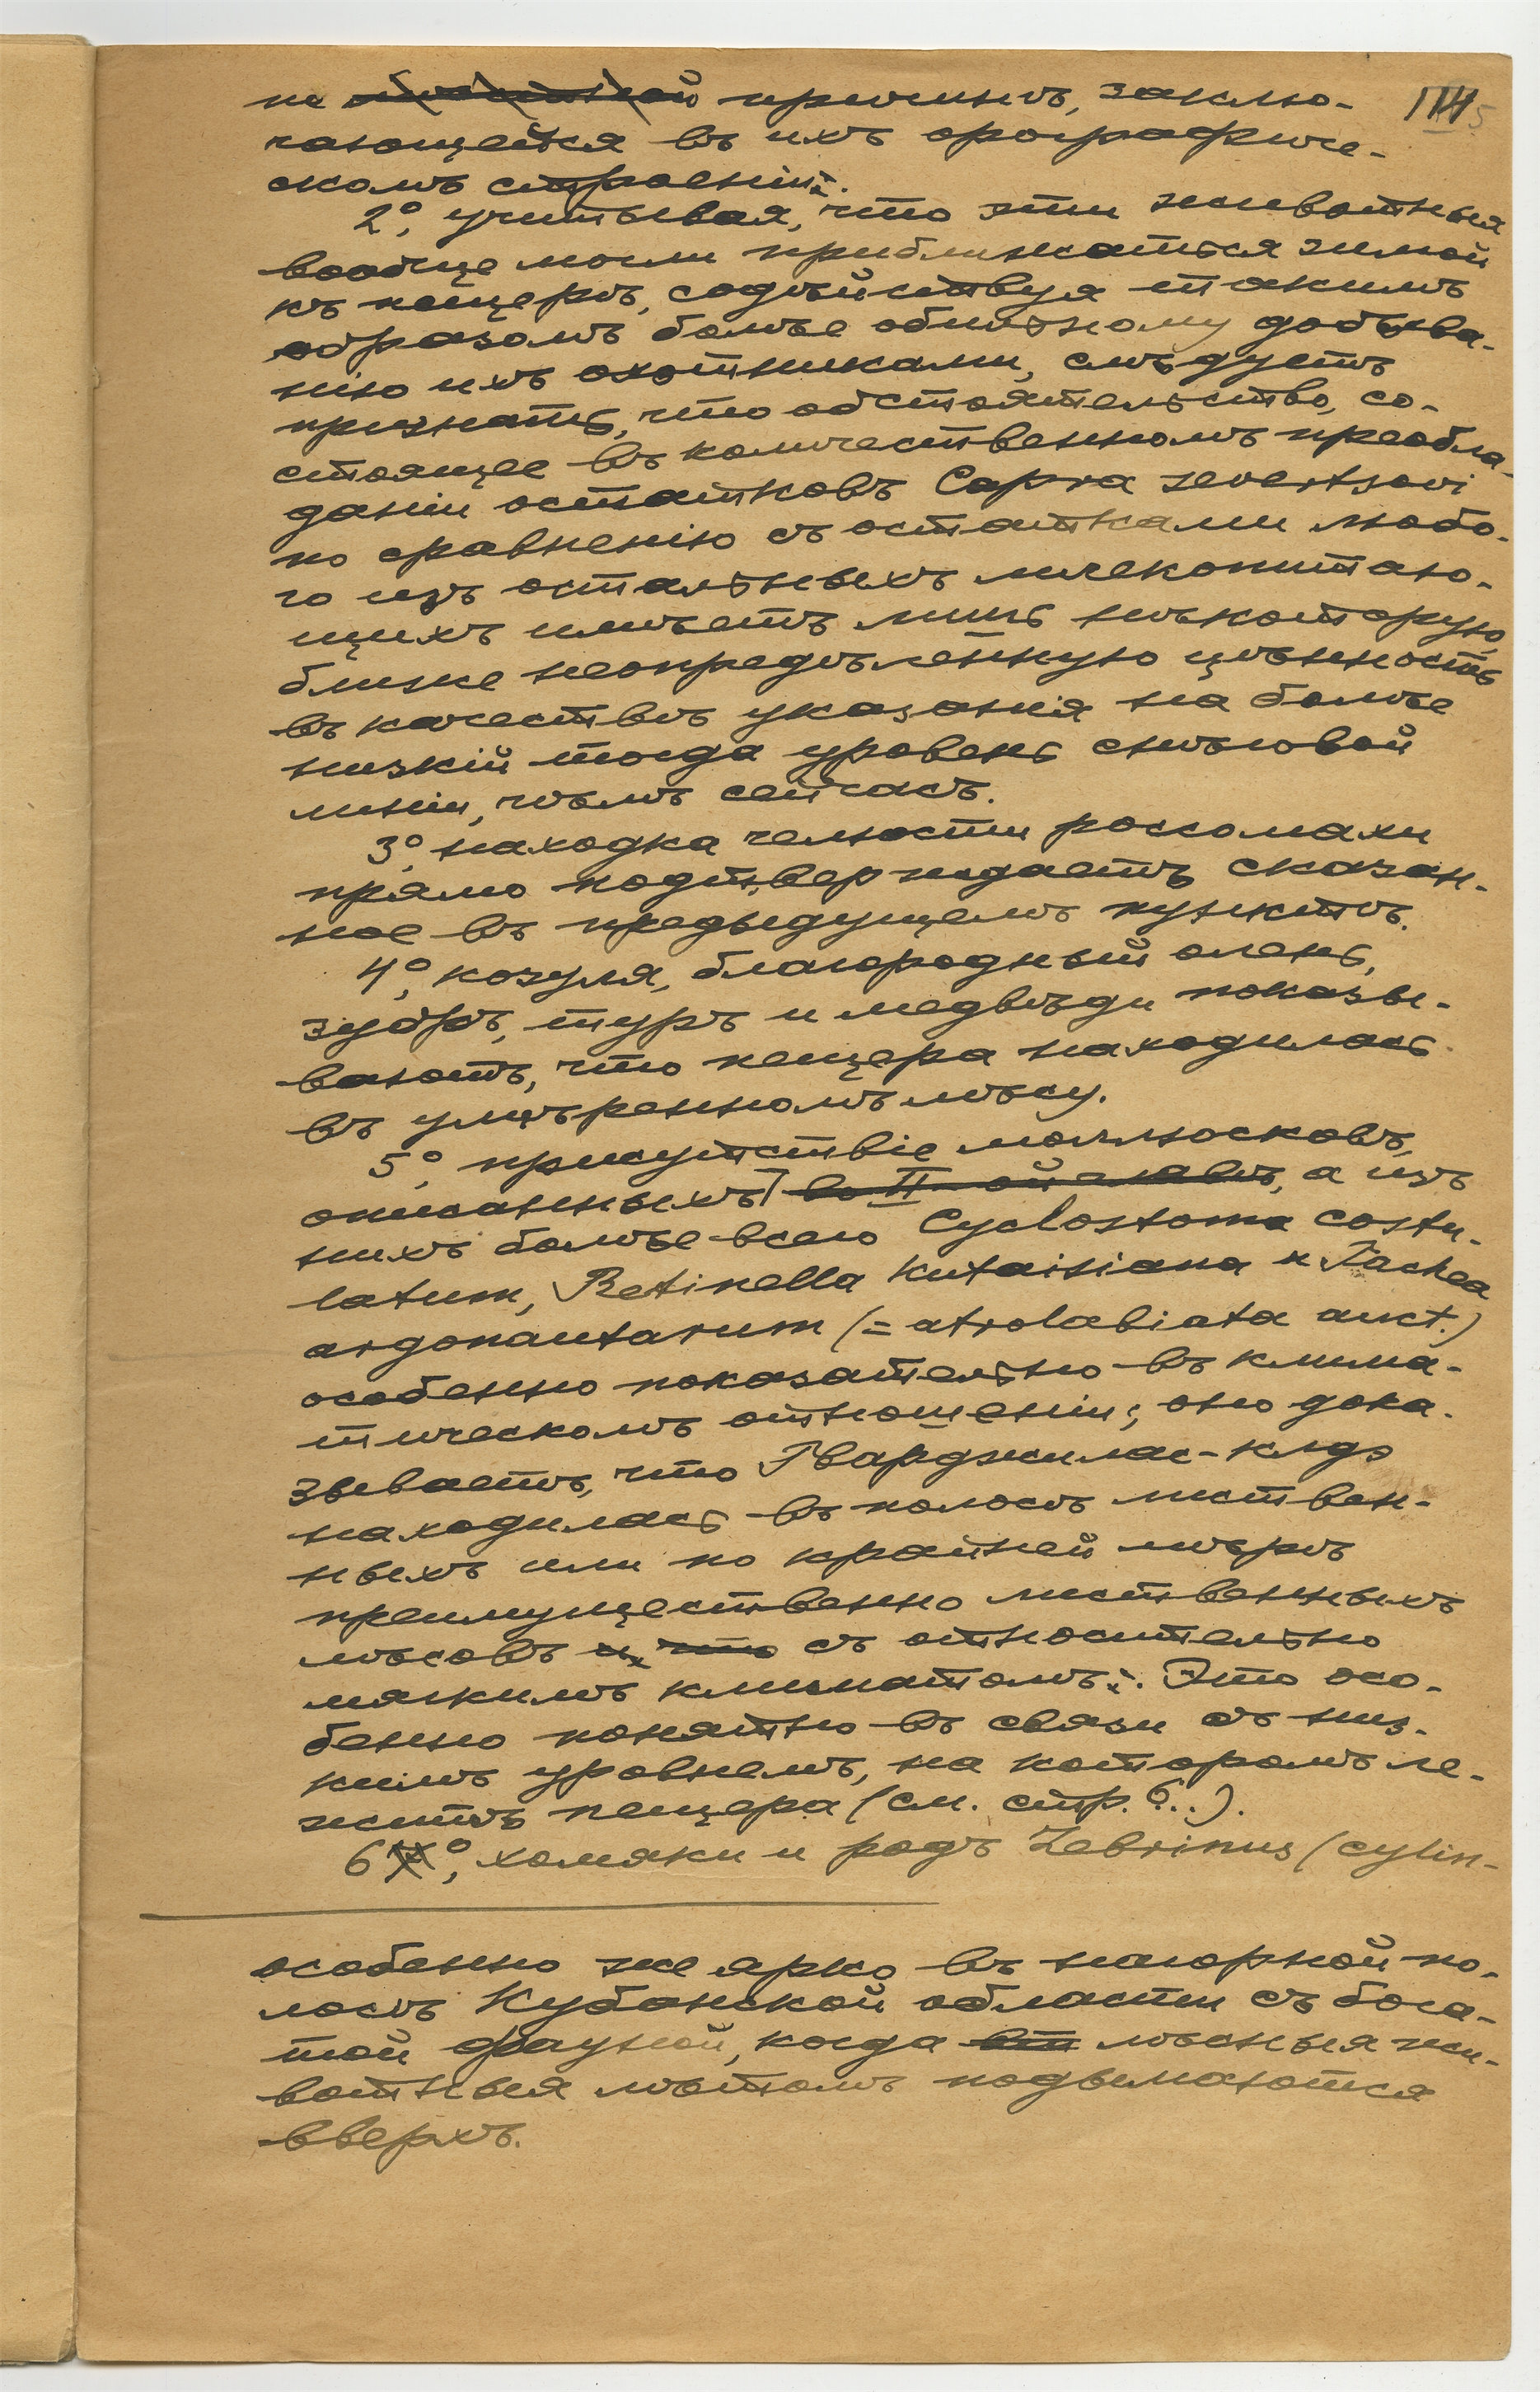 по причинѣ, заклю-
чающейся въ ихъ орографиче-
скомъ строеніи.
2°, учитывая, что эти животныя
вообще могли приближаться зимой
къ пещерѣ, содѣйствуя такимъ
образомъ болѣе обильному добыва-
нію ихъ охотниками, слѣдуетъ
признать, что обстоятельство, со-
стоящее въ количественномъ преобла-
даніи остатковъ Capra severtsovi
по сравненію съ остатками любо-
го изъ остальныхъ млекопитаю-
щихъ имѣетъ лишь нѣкоторую,
ближе неопредѣленную цѣнность
въ качествѣ указанія на болѣе
низкій тогда уровень снѣговой
линіи, чѣмъ сейчасъ.
3°, находка челюсти россомахи
прямо подтверждаетъ сказан-
ное въ предыдущемъ пунктѣ.
4°, козуля, благородный олень,
зубръ, туръ и медвѣди показы-
ваютъ, что пещера находилась
въ умѣренномъ лѣсу.
5°, присутствіе моллюсковъ,
описанныхъ во II-ой главѣ, а изъ
нихъ болѣе всего Cyclostoma costu-
latum, Retinella kutaisiana и Tachea
argonautarum (= atrolabiata auct.)
особенно показательно въ клима-
тическомъ отношеніи; оно дока-
зываетъ, что Гварджилас-клдэ
находилась въ полосѣ листвен-
ныхъ или по крайней мѣрѣ
преимущественно лиственныхъ
лѣсовъ и, что съ относительно
мягкимъ климатомъ. Это осо-
бенно понятно въ связи съ низ-
кимъ уровнемъ, на которомъ ле-
житъ пещера (см. стр. 6...).
6°, хомяки и родъ Zebrinus (cylin-
особенно же ярко въ нагорной по-
лосѣ Кубанской области съ бога-
той фауной, когда лѣсныя жи-
вотныя лѣтомъ подымаются
вверхъ.